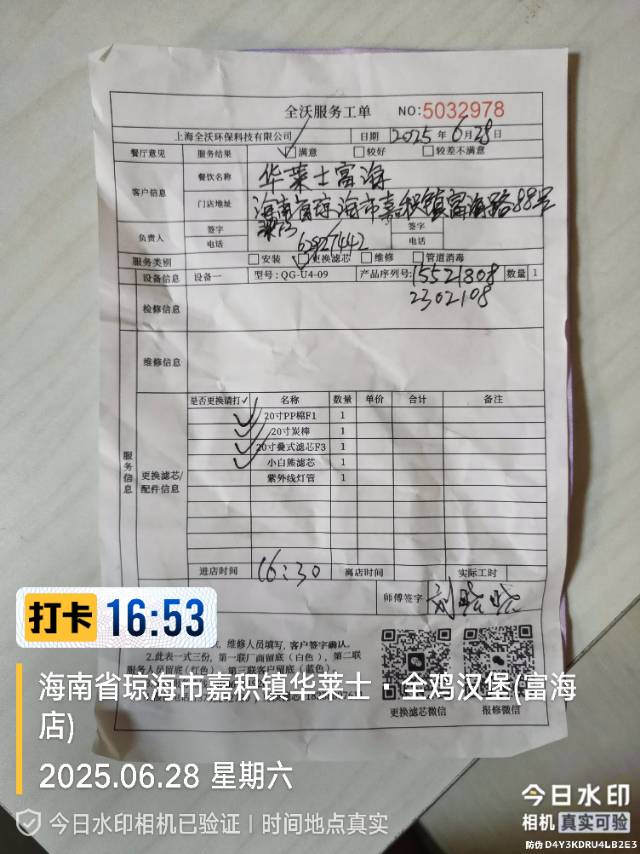 全沃服务工单 NO:5032978
上海全沃环保科技有限公司 日期 2025年6月28日
餐厅意见 服务结果 满意 较好 较差不满意
客户信息 餐饮名称 华莱士富海
门店地址 海南省琼海市嘉积镇富海路88号
负责人 签字 签字
电话 62827442 电话
服务类别 安装 更换滤芯 维修 管道消毒
设备信息 设备一 型号:QG-U4-09 产品序列号: 15521308 数量 1
2302108
检修信息
维修信息
服务信息
是否更换请打✓ 名称 数量 单价 合计 备注
✓ 20寸PP棉F1 1
✓ 20寸炭棒 1
✓ 20寸叠式滤芯F3 1
✓ 小白熊滤芯 1
紫外线灯管 1
更换滤芯/配件信息
进店时间 16:30 离店时间 实际工时
师傅签字
维修人员填写,客户签字确认。
2.此表一式三份,第一联厂商留底(白色),第二联
服务人员留底(红色),第三联客户留底(蓝色)。
更换滤芯微信 报修微信
打卡 16:53
海南省琼海市嘉积镇华莱士·全鸡汉堡(富海
店)
2025.06.28 星期六
今日水印相机已验证 时间地点真实
今日水印
相机 真实可验
防伪 D4Y3KDRU4LB2E3